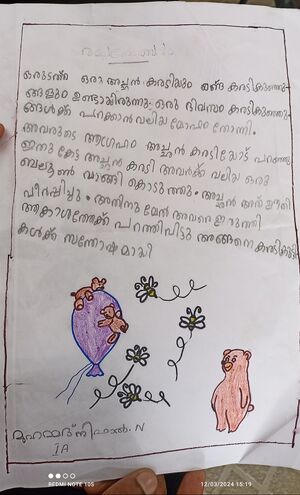 ഒരിടത്ത് ഒരു അച്ഛൻ കരടിയും രണ്ടു കരടിക്കുഞ്ഞു
ങ്ങളും ഉണ്ടായിരുന്നു. ഒരു ദിവസം കരടിക്കുഞ്ഞു
ങ്ങൾക്ക് പറക്കാൻ വലിയ മോഹം തോന്നി.
അവരുടെ ആഗ്രഹം അച്ഛൻ കരടിയോട് പറഞ്ഞു
ഇതു കേട്ട അച്ഛൻ കരടി അവർക്ക് വലിയ ഒരു
ബലൂൺ വാങ്ങി കൊടുത്തു. അച്ഛൻ അത് ഊതി
വീർപ്പിച്ചു. അതിനു മേൽ അവരെ ഇരുത്തി
ആകാശത്തേക്ക് പറത്തിവിട്ടു അങ്ങനെ കരടിക്കുട്ടി
കൾക്ക് സന്തോഷമായി
മുഹമ്മദ് നിഹാൽ. N
I A
REDMI NOTE 10S
12/03/2024 15:19